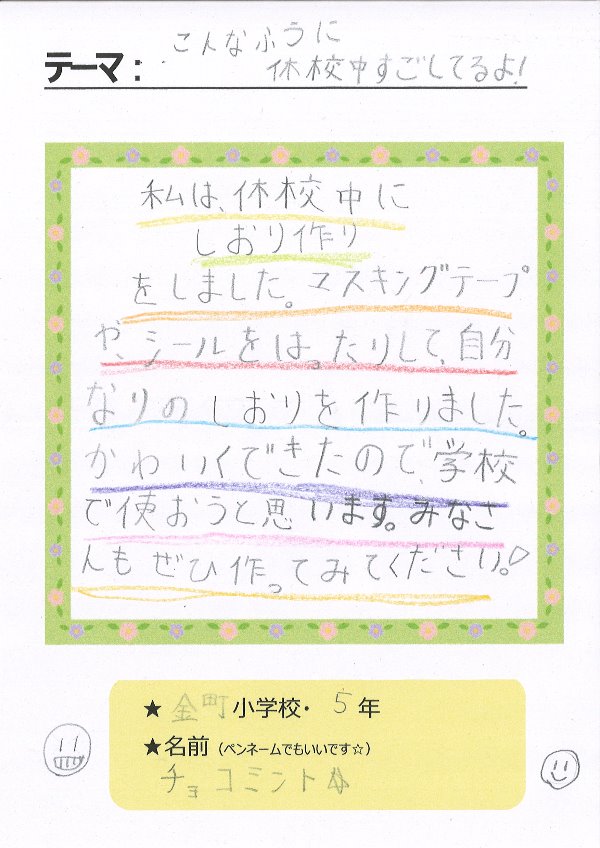 テーマ：こんなふうに
休校中すごしてるよ!
私は、休校中に
しおり作り
をしました。マスキングテープ
や、シールをはったりして、自分
なりのしおりを作りました。
かわいくできたので、学校
で使おうと思います。みなさ
んもぜひ作ってみてください。♡
★金町小学校・5年
★名前（ペンネームでもいいです☆）
チョコミント